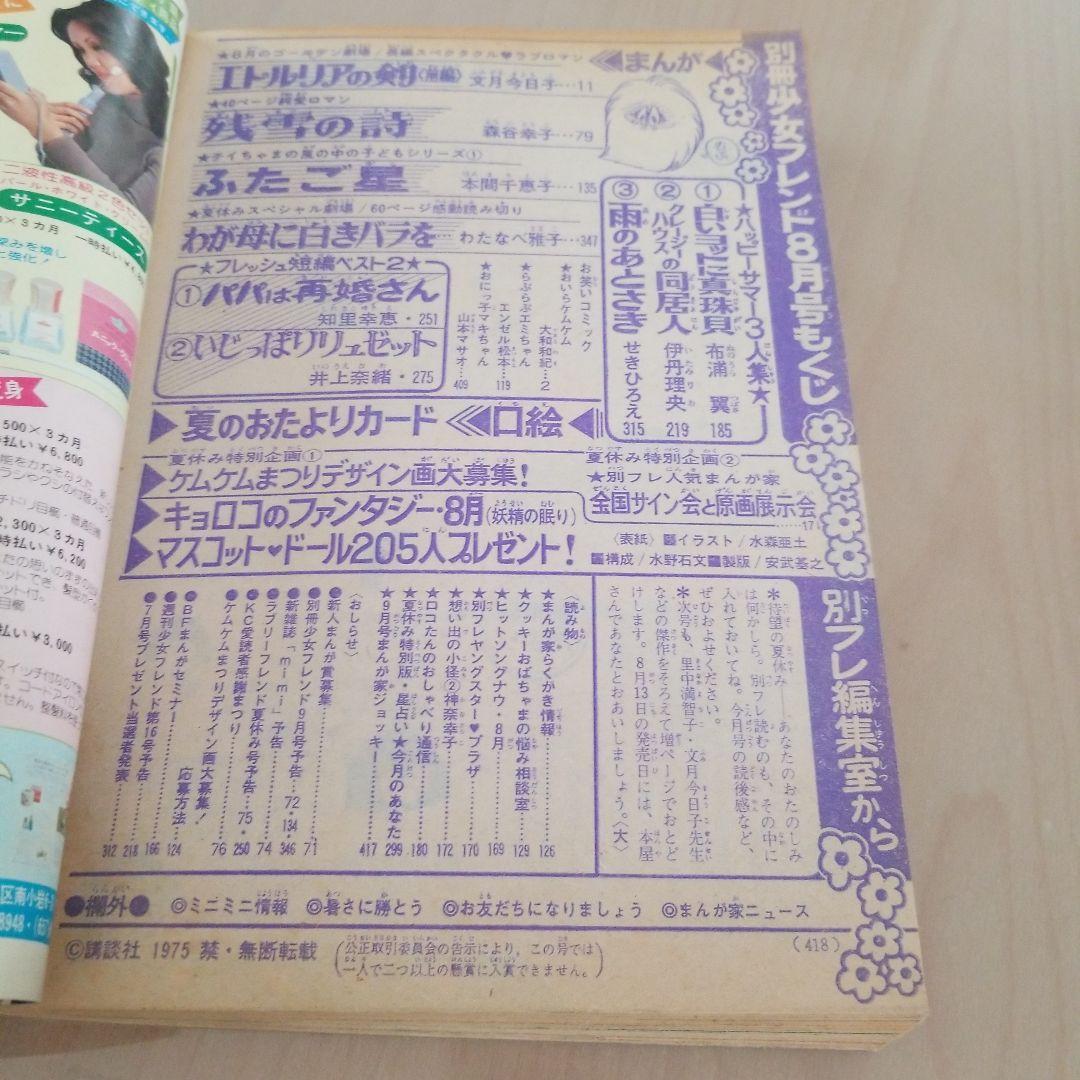 別冊少女フレンド8月号もくじ
まんが
★8月のゴールデン劇場/長編スペクタクル♥ラブロマン
エトルリアの剣〈前編〉 文月今日子…11
★40ページ純愛ロマン
残雪の詩 森谷幸子…79
★テイちゃまの風の中の子どもシリーズ①
ふたご星 本間千恵子…135
★夏休みスペシャル劇場/60ページ感動読み切り
わが母に白きバラを… わたなべ雅子…347
★ハッピーサマー3人集★
①白いヨットに真珠貝 布浦翼 185
②クレージィハウスの同居人 伊丹理央 219
③雨のあとさき せきひろえ 315
★フレッシュ短編ベスト2★
①パパは再婚さん
知里幸恵・251
②いじっぱりリュゼット
井上奈緒・275
お笑いコミック
★おいらケムケム
大和和紀…2
★らぶらぶエミちゃん
エンゼル松本…119
★おにっ子マキちゃん
山本マサオ…409
夏のおたよりカード 口絵
夏休み特別企画①
ケムケムまつりデザイン画大募集!
キョロコのファンタジー・8月(妖精の眠り)
マスコット♥ドール205人プレゼント!
夏休み特別企画②
★別フレ人気まんが家
全国サイン会と原画展示会
……17
〈表紙〉■イラスト/水森亜土
■構成/水野石文■製版/安武基之
別フレ編集室から
*待望の夏休み——あなたのおたのしみ
は何かしら。別フレ読むのも、その中に
入れておいてね。今月号の読後感など、
ぜひおよせください。
*次号も、里中満智子・文月今日子先生
などの傑作をそろえて増ページでおとど
けします。8月13日の発売日には、本屋
さんであなたとおあいしましょう。〈大〉
〈読み物〉
★まんが家らくがき情報……126
★クッキーおばちゃまの悩み相談室……129
★ヒットソングナウ・8月……169
★別フレヤングスター♥プラザ……170
★想い出の小径②神奈幸子……172
★ロコたんのおしゃべり通信……180
★夏休み特別版・星占い★今月のあなた……299
★9月号まんが家ジョッキー……417
〈おしらせ〉
●新人まんが賞募集……71
●別冊少女フレンド9月号予告…72・134
●新雑誌「mimi」予告……346
●ラブリーフレンド夏休み号予告……74
●KC愛読者感謝まつり……75・250
●ケムケムまつりデザイン画大募集!……76
●BFまんがセミナー 応募方法……124
●週刊少女フレンド第16号予告……166
●7月号プレゼント当選者発表……218
312
●欄外● ◎ミニミニ情報 ◎暑さに勝とう ◎お友だちになりましょう ◎まんが家ニュース
©講談社 1975 禁・無断転載
(公正取引委員会の告示により、この号では
一人で二つ以上の懸賞に入賞できません。)
(418)
二液性高級2色セ
パール・ホワイト
サニーティース
×3カ月 一時払い
500×3カ月
時払い¥6,800
2,300×3カ月
時払い¥6,200
払い¥3,000
区南小岩
8948